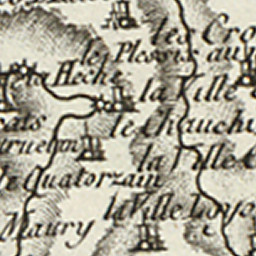 les Cro
le Plessis au
la Fleche
la Ville
le Chauch
la Ville
Quatorzain
la Ville Loyo
Maury